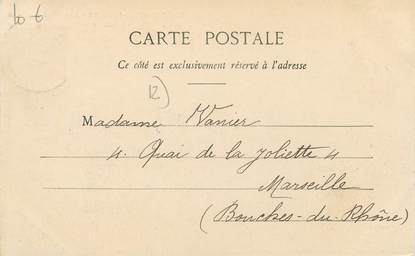 CARTE POSTALE
Ce côté est exclusivement réservé à l'adresse
Madame Vanier
4. Quai de la Joliette 4
Marseille
(Bouches-du-Rhône)